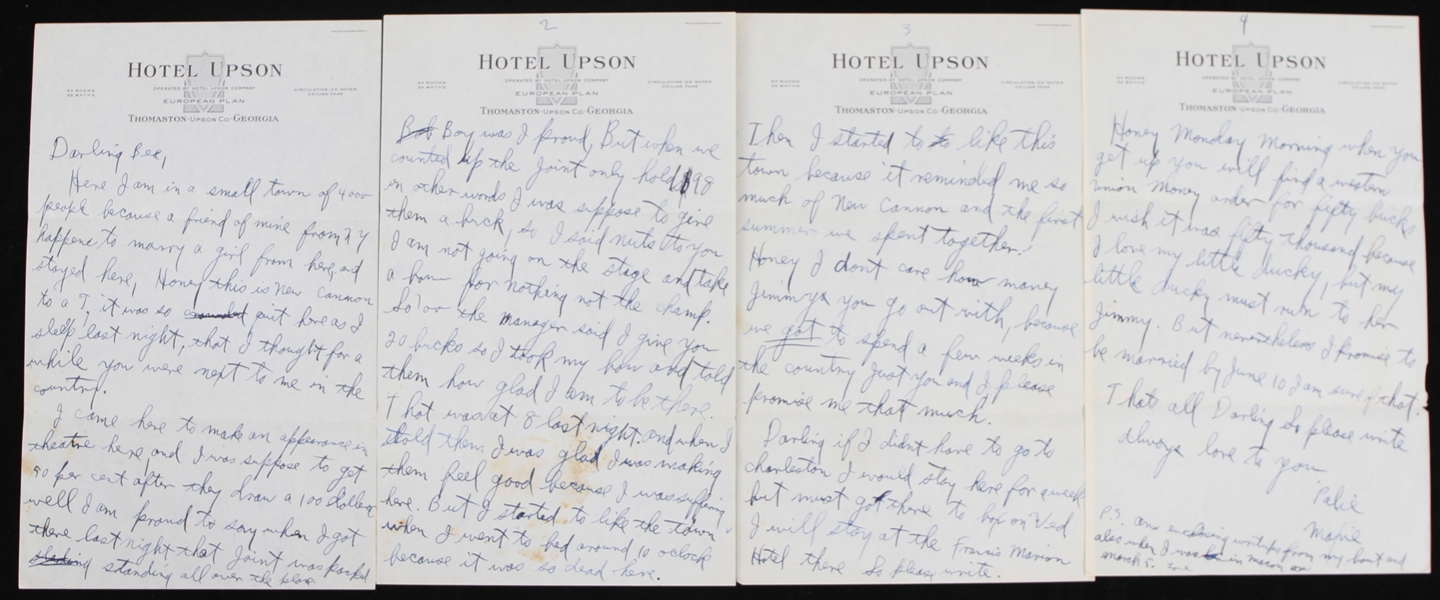 HOTEL UPSON
OPERATED BY HOTEL UPSON COMPANY
EUROPEAN PLAN
CIRCULATING ICE WATER
CEILING FANS
THOMASTON-UPSON CO-GEORGIA
Darling Bee,
Here I am in a small town of 4000
people because a friend of mine from N Y
happene to marry a girl from here, and
stayed here, Honey this is New Cannon
to a T, it was so quit here as I
sleep last night, that I thought for a
while you were next to me in the
country.
I came here to make an appearance in
theatre here, and I was suppose to get
50 per cent after they draw a 100 dollars
well I am proud to say when I got
there last night that Joint was packed
standing all over the place.
2
HOTEL UPSON
OPERATED BY HOTEL UPSON COMPANY
EUROPEAN PLAN
CIRCULATING ICE WATER
CEILING FANS
THOMASTON-UPSON CO-GEORGIA
Bob Boy was I proud, But when we
counted up the Joint only hold 198
in other words I was suppose to give
them a buck, so I said nuts to you
I am not going on the stage and take
a bow for nothing not the champ.
So the manager said I give you
20 bucks so I took my bow and told
them how glad I am to be there.
That was at 8 last night. and when I
told them I was glad I was making
them feel good because I was suffing
here. But I started to like the town
when I went to bed around 10 oclock
because it was so dead here.
3
HOTEL UPSON
OPERATED BY HOTEL UPSON COMPANY
EUROPEAN PLAN
CIRCULATING ICE WATER
CEILING FANS
THOMASTON-UPSON CO-GEORGIA
Then I started to like this
town because it reminded me so
much of New Cannon and the first
summer we spent together.
Honey I dont care how many
Jimmys you go out with, because
we got to spend a few weeks in
the country Just you and I, please
promise me that much.
Darling if I didnt have to go to
charleston I would stay here for a week
but must go there to box on Wed
I will stay at the Francis Marion
Hotel there So please write.
4
HOTEL UPSON
OPERATED BY HOTEL UPSON COMPANY
EUROPEAN PLAN
CIRCULATING ICE WATER
CEILING FANS
THOMASTON-UPSON CO-GEORGIA
Honey Monday Morning when you
get up you will find a western
union money order for fifty bucks
I wish it was fifty thousand because
I love my little ducky, but my
little ducky must run to her
Jimmy. But nevertheless I promise to
be married by June 10 I am sure of that.
Thats all Darling So please write
always love to you
Maxie
P.S. am enclosing writeups from my bout and
also when I was in macon on
march 5.